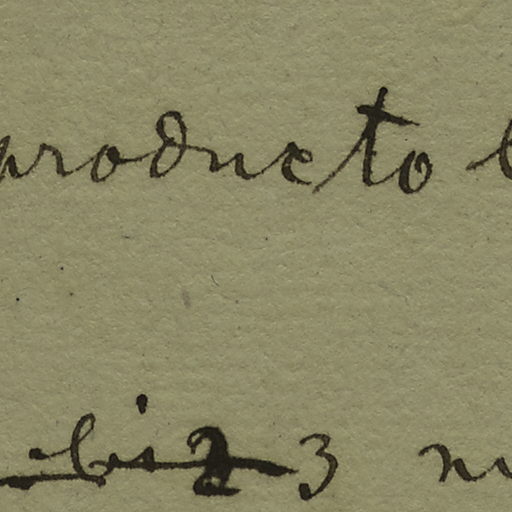 producto
bis 2 3